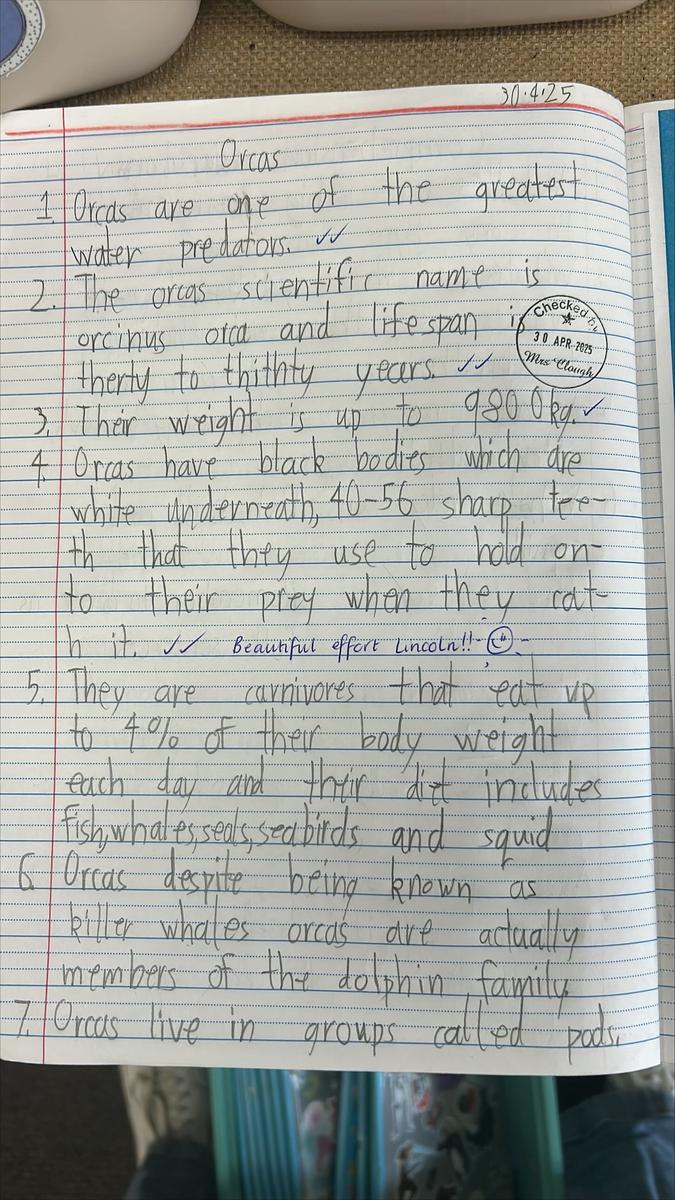 30.4.25
Orcas
1. Orcas are one of the greatest
water predators. ✓✓
2. The orcas scientific name is
orcinus orca and lifespan is
therty to thithty years. ✓✓
Checked by
30 APR 2025
Mrs Clough
3. Their weight is up to 9800kg. ✓
4. Orcas have black bodies which are
white underneath, 40-56 sharp tee-
th that they use to hold on-
to their prey when they cat-
h it. ✓✓ Beautiful effort Lincoln!!
5. They are carnivores that eat up
to 4% of their body weight
each day and their diet includes
fish, whales, seals, seabirds and squid
6. Orcas despite being known as
killer whales orcas are actually
members of the dolphin family.
7. Orcas live in groups called pods.